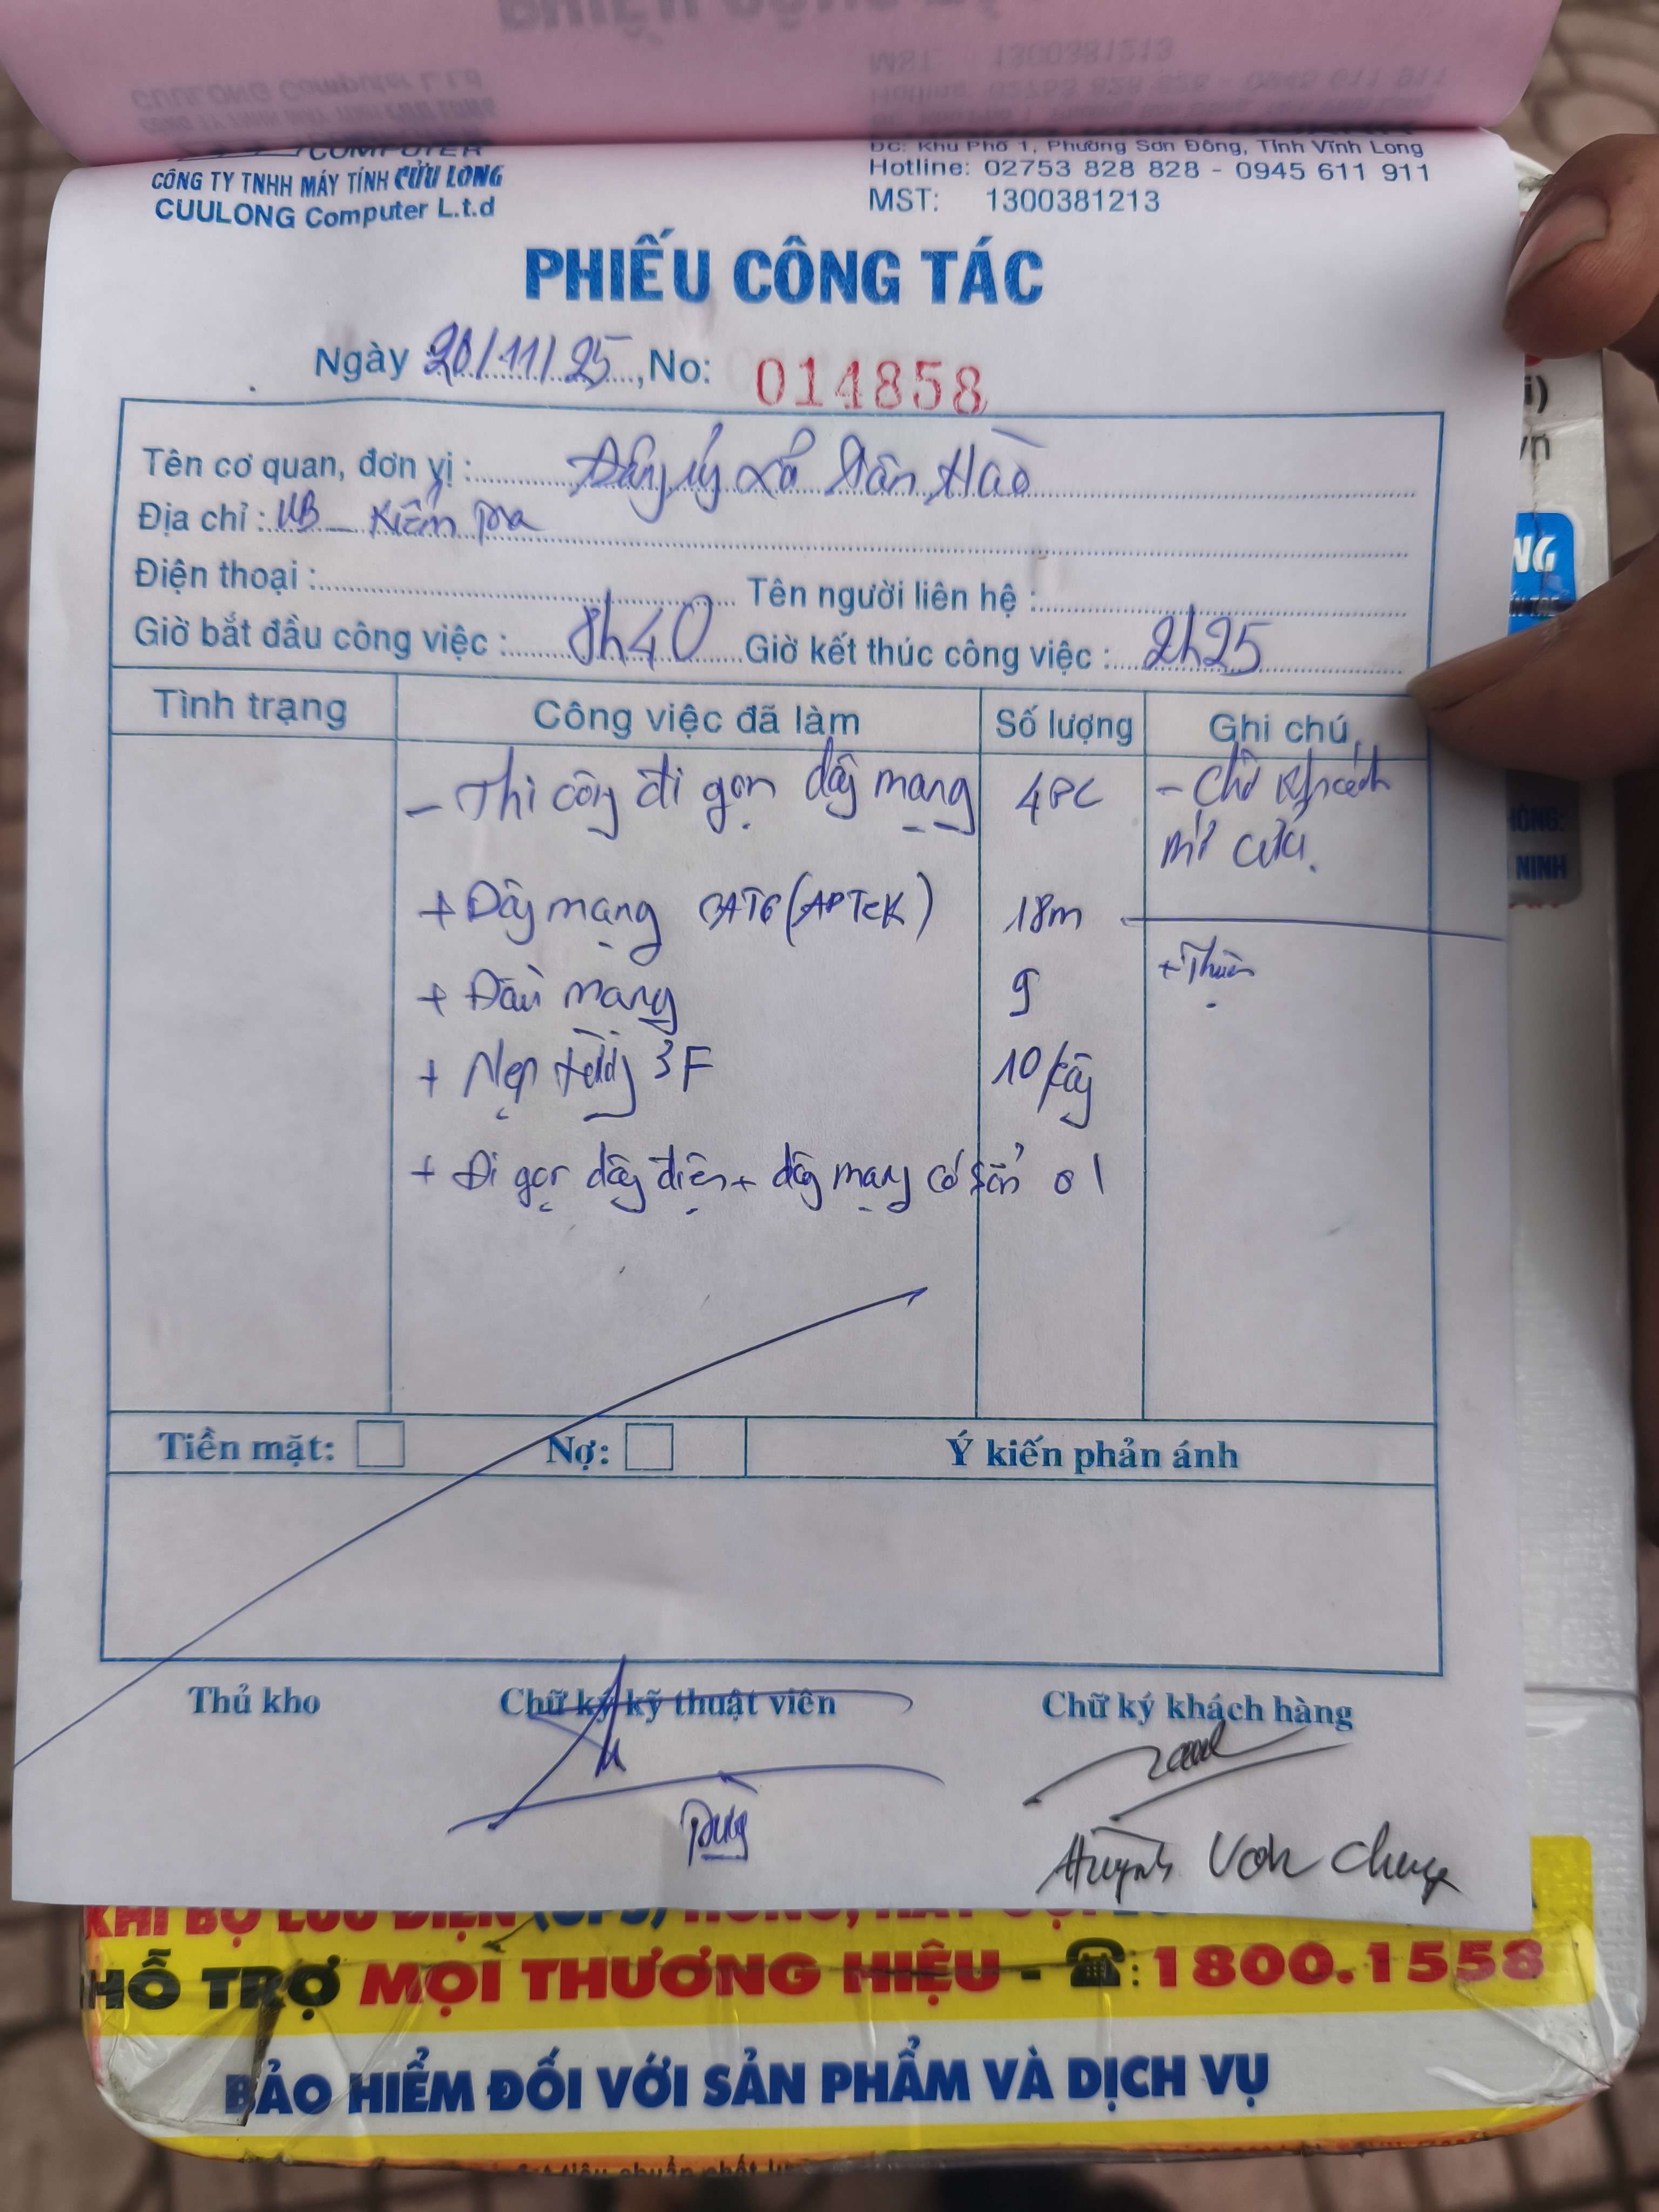 COMPUTER
CÔNG TY TNHH MÁY TÍNH CỬU LONG
CUULONG Computer L.t.d
ĐC: Khu Phố 1, Phường Sơn Đông, Tỉnh Vĩnh Long
Hotline: 02753 828 828 - 0945 611 911
MST: 1300381213
PHIẾU CÔNG TÁC
Ngày 20/11/25, No: 014858
Tên cơ quan, đơn vị: Đảng ủy xã Tân Hào
Địa chỉ: UB - Kiểm Tra
Điện thoại: Tên người liên hệ:
Giờ bắt đầu công việc: 8h40 Giờ kết thúc công việc: 2h25
Tình trạng Công việc đã làm Số lượng Ghi chú
- Thi công đi gọn dây mạng 4PC - Chờ khách
mở cửa.
+ Dây mạng CAT6 (APTEK) 18m
+ Đầu mạng 9 + Thuận
+ Nẹp 3F 10/cây
+ Đi gọn dây điện + dây mạng có sẵn 01
Tiền mặt: Nợ: Ý kiến phản ánh
Thủ kho Chữ ký kỹ thuật viên Chữ ký khách hàng
Huỳnh Văn
KHI BỘ LƯU ĐIỆN (UPS)
HỖ TRỢ MỌI THƯƠNG HIỆU - : 1800.1558
BẢO HIỂM ĐỐI VỚI SẢN PHẨM VÀ DỊCH VỤ